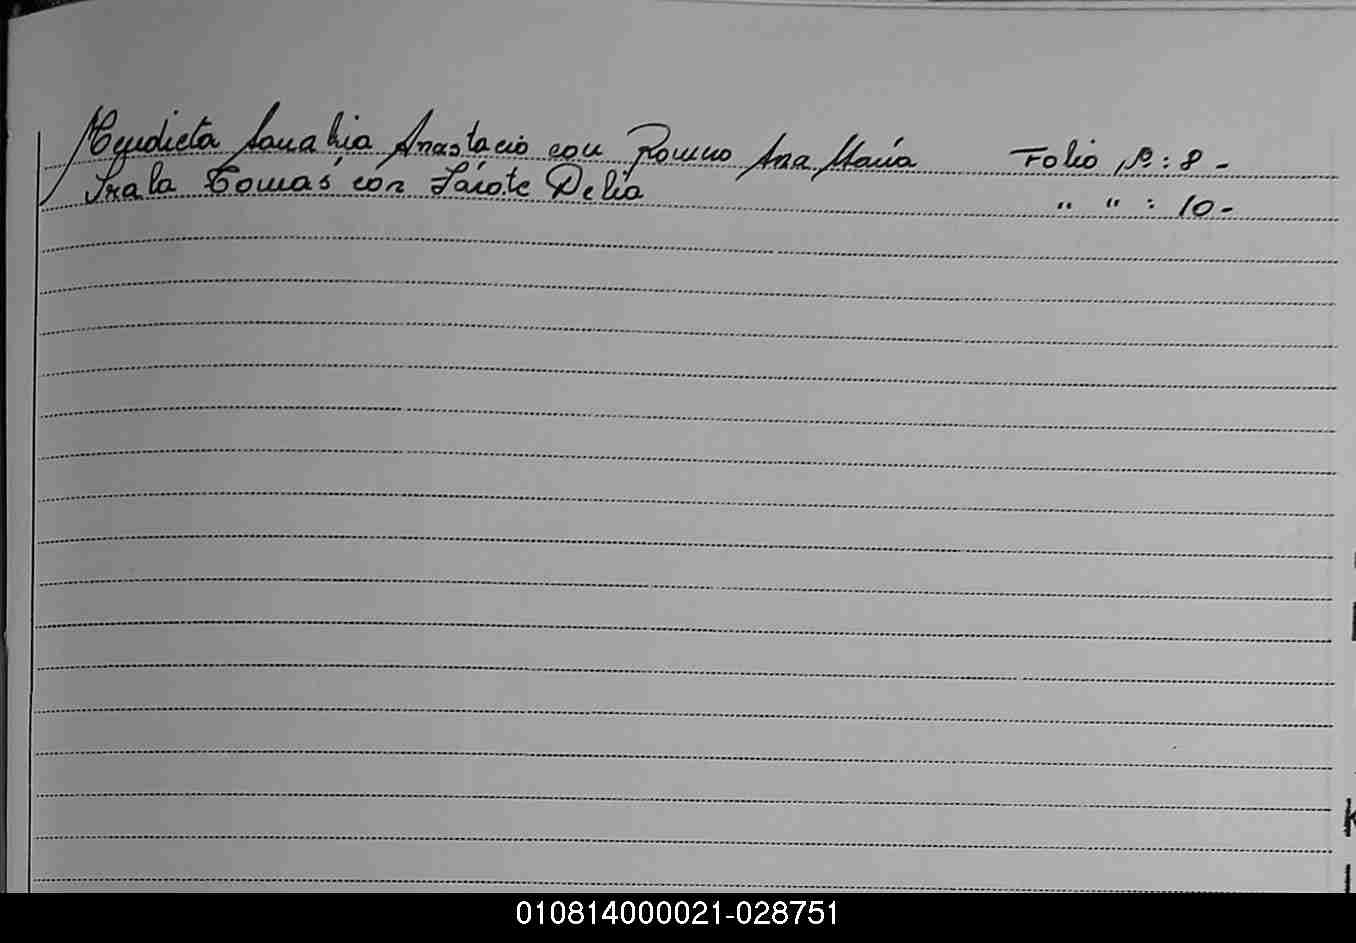 Mendieta Sanabria Anastacio con Romero Ana María Folio Nº: 8 -
Irala Tomás con Sárote Delia " " : 10 -
010814000021-028751